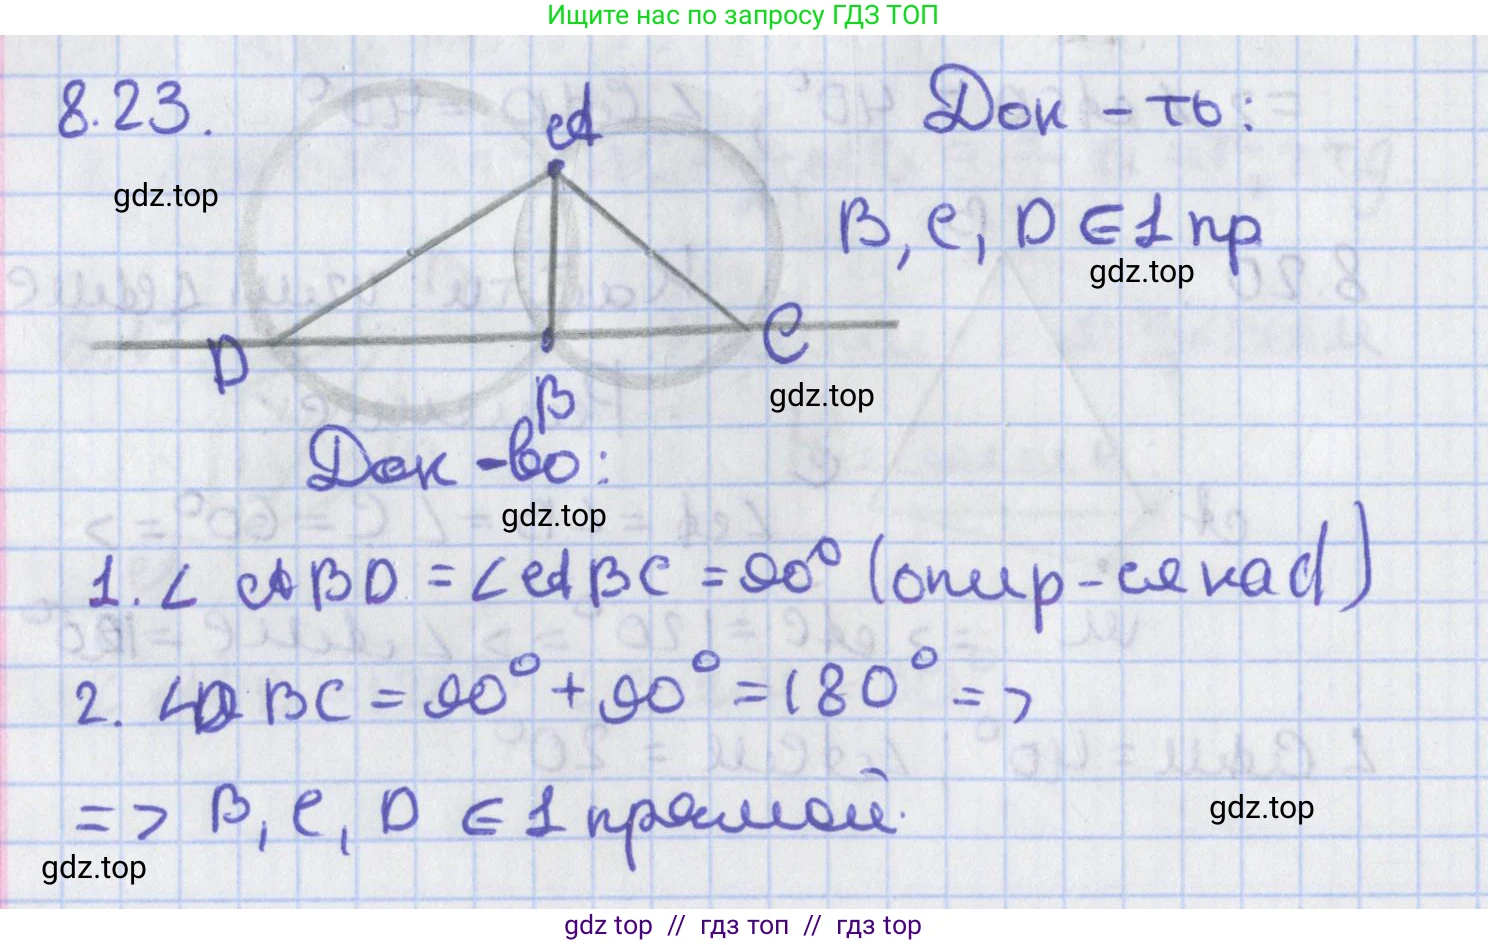 Ищите нас по запросу ГДЗ ТОП
8.23.
A
Док-ть:
gdz.top
B, C, D ∈ 1 пр
gdz.top
D
C
gdz.top
B
Док-во:
gdz.top
1. ∠ ABD = ∠ABC = 90° (опир-ся на d)
2. ∠DBC = 90° + 90° = 180° =>
=> B, C, D ∈ 1 прямой.
gdz.top
gdz.top
gdz top // гдз топ // гдз top